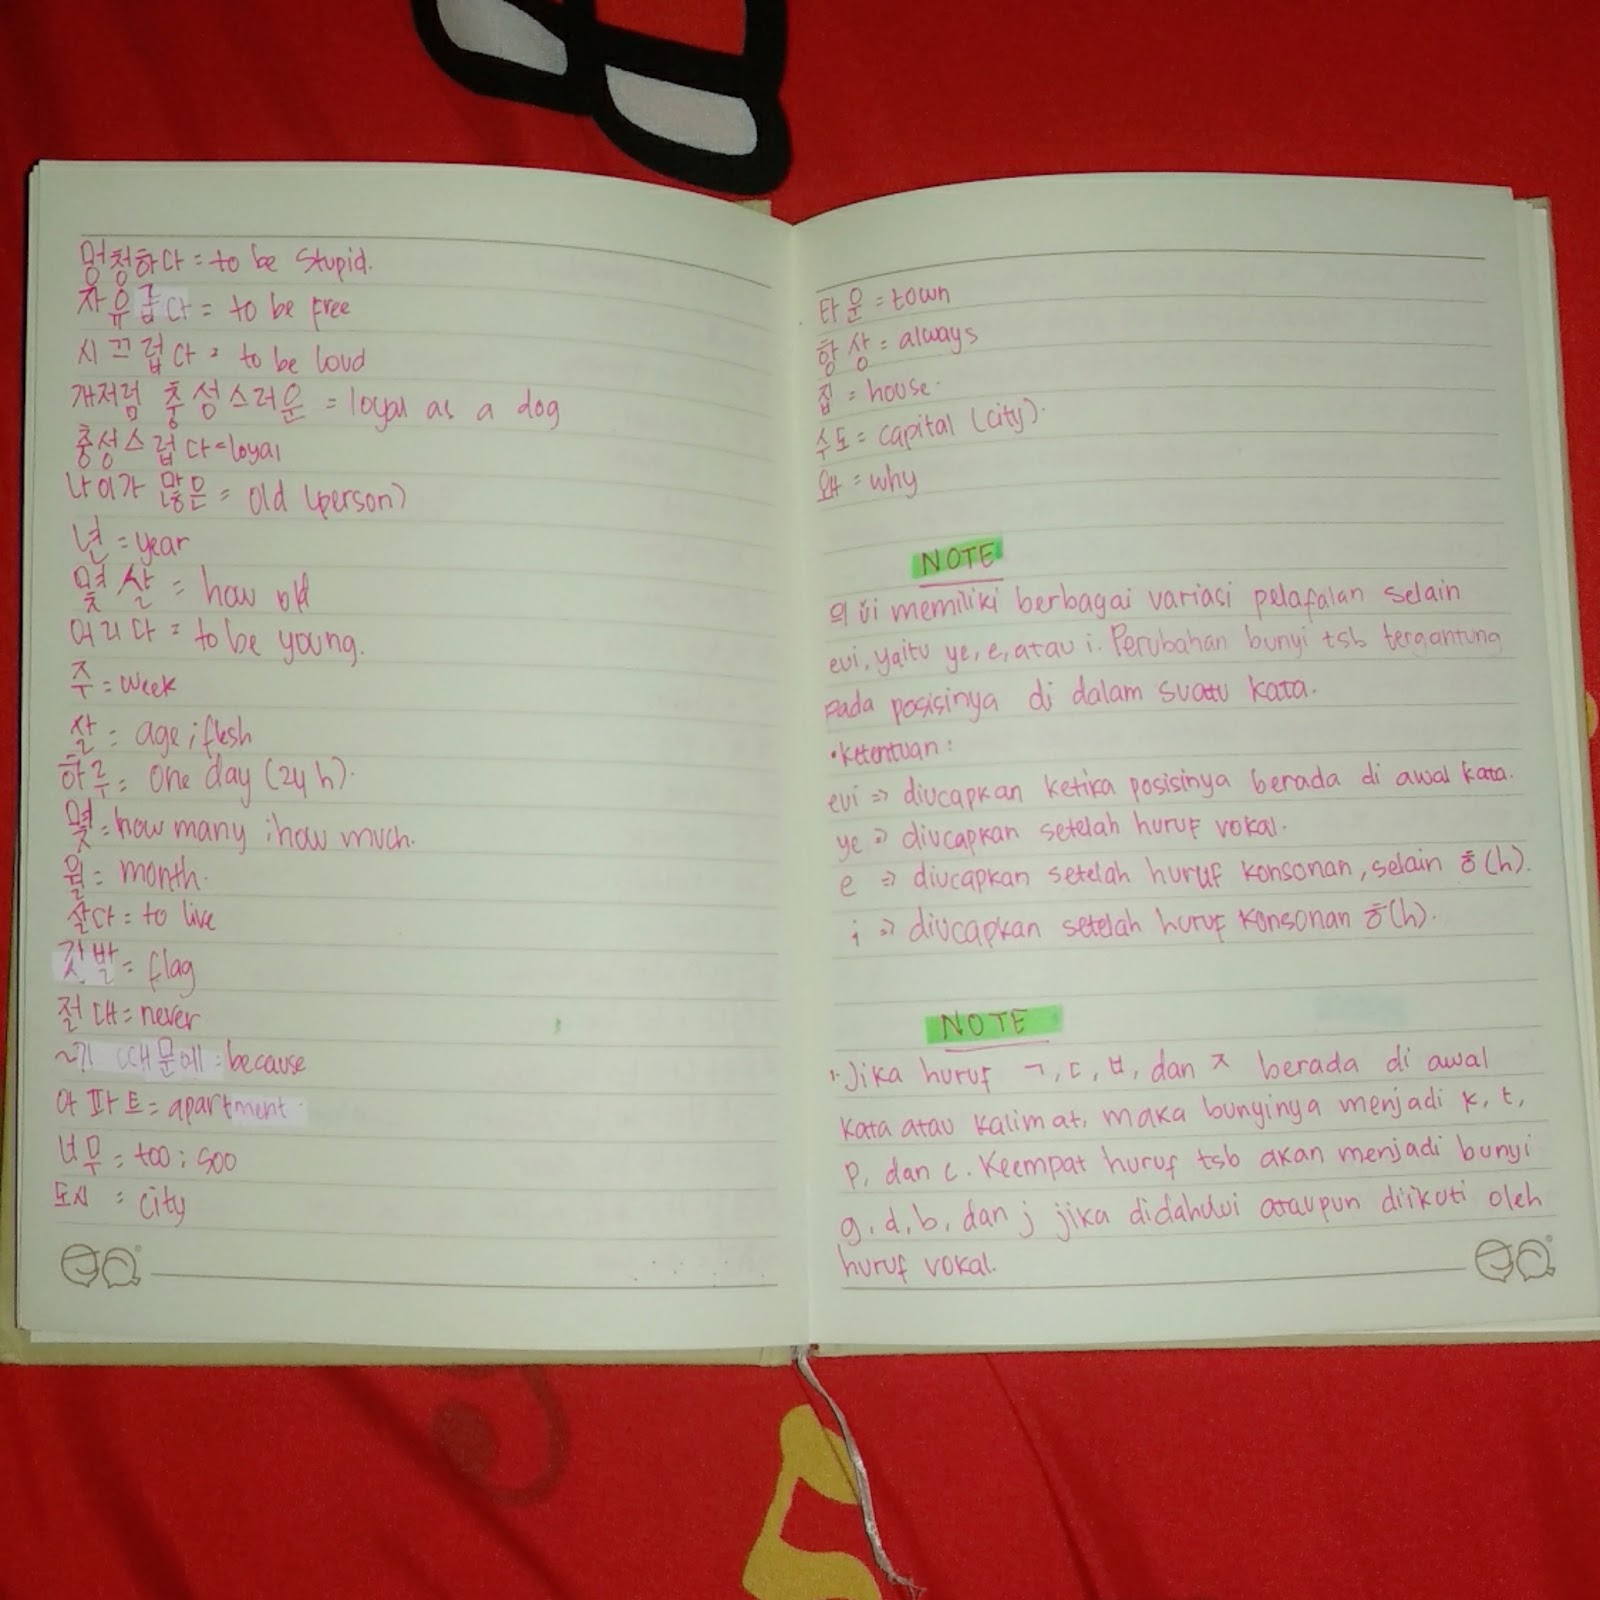 멍청하다 = to be stupid.
자유롭다 = to be free
시끄럽다 = to be loud
개저럼 충성스러운 = loyal as a dog
충성스럽다 = loyal
나이가 많은 = old (person)
년 = year
몇 살 = how old
어리다 = to be young.
주 = week
살 = age ; flesh
하루 = one day (24 h).
몇 = how many ; how much.
월 = month.
살다 = to live
깃발 = flag
절대 = never
~기 때문에 = because
아파트 = apartment.
너무 = too ; soo
도시 = city
타운 = town
항상 = always
집 = house.
수도 = capital (city).
왜 = why
NOTE
의 ŭi memiliki berbagai variasi pelafalan selain
eui, yaitu ye, e, atau i. Perubahan bunyi tsb tergantung
pada posisinya di dalam suatu kata.
• Ketentuan :
eui => diucapkan ketika posisinya berada di awal kata.
ye => diucapkan setelah huruf vokal.
e => diucapkan setelah huruf konsonan, selain ㅎ (h).
i => diucapkan setelah huruf konsonan ㅎ (h).
NOTE
Jika huruf ㄱ, ㄷ, ㅂ, dan ㅈ berada di awal
kata atau kalimat, maka bunyinya menjadi k, t,
p, dan c. Keempat huruf tsb akan menjadi bunyi
g, d, b, dan j jika didahului ataupun diikuti oleh
huruf vokal.